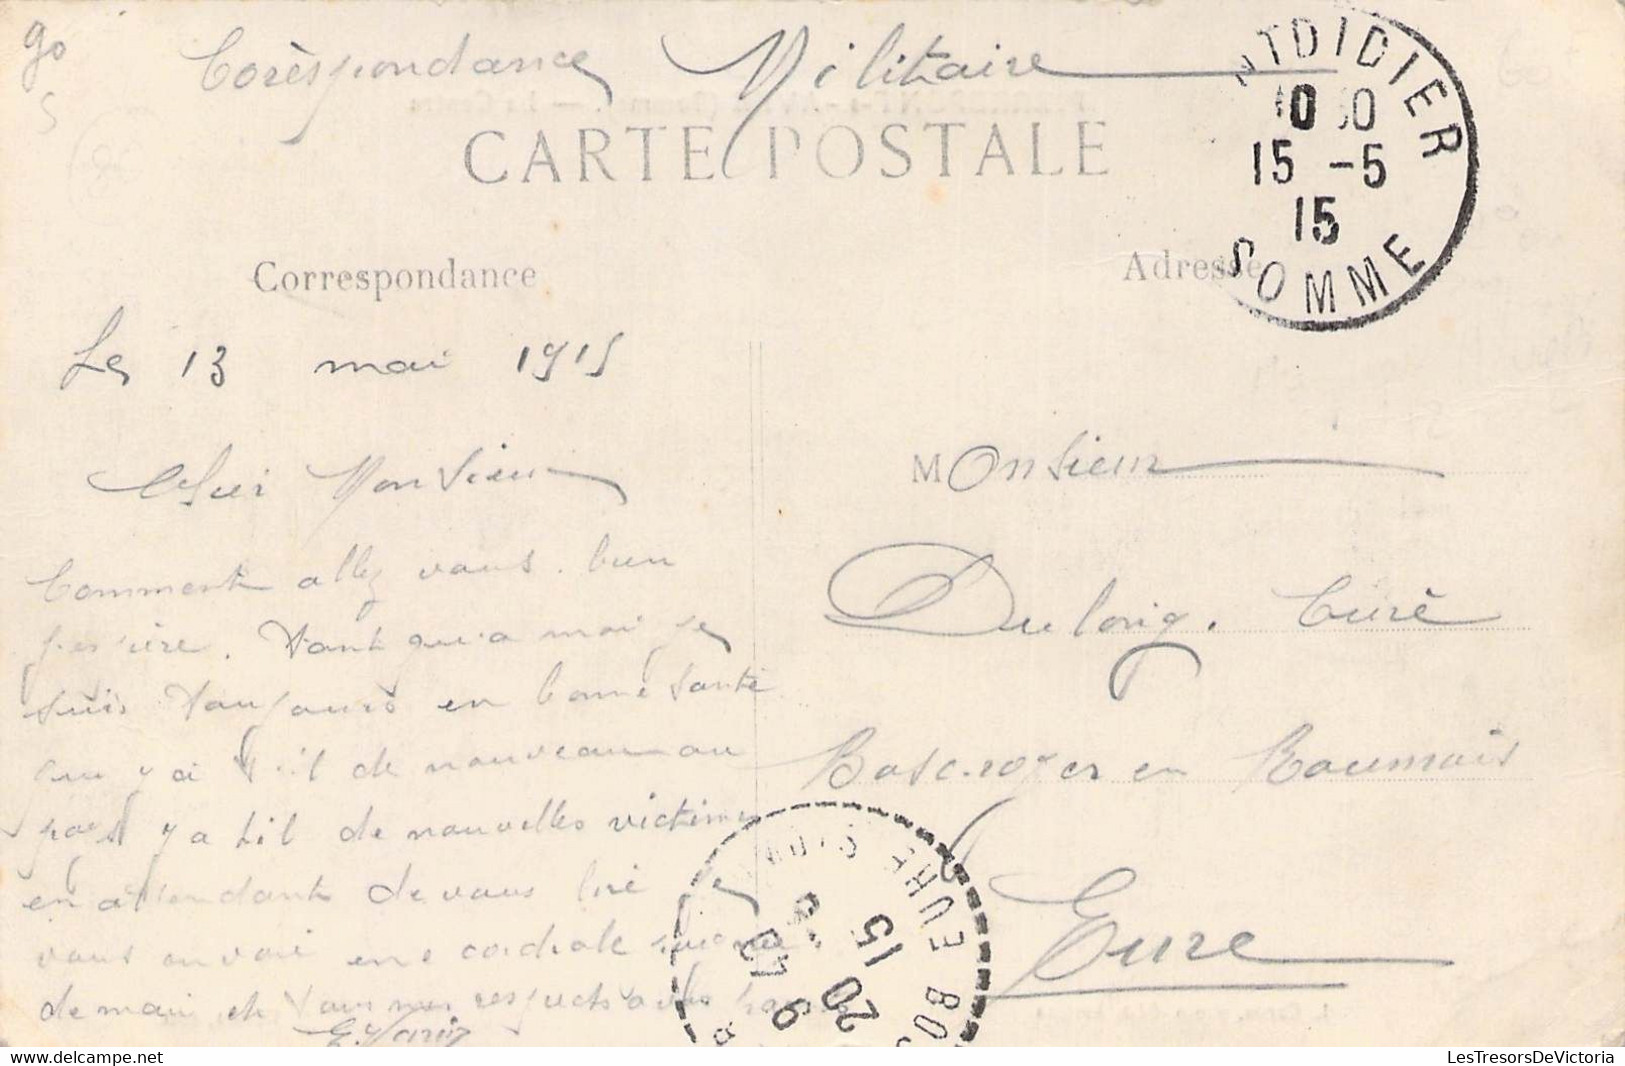 90
5
Corèspondance Militaire
CARTE POSTALE
NTDIDIER
15 -5
15
SOMME
Correspondance
Adresse
Le 13 mai 1915
Cher Monsieur
Comment allez vous. bien
j'espère. Tant qu'a moi je
suis toujours en bonne santé
que y a t-il de nouveau au
pays y a til de nouvelles victimes
en attendant de vous lire je
vous envoi une cordiale poignée
de main et tous mes respects
Monsieur
Dulong. Curé
Boscroger en Roumois
Eure
EURE BOS
20
15
LesTresorsDeVictoria